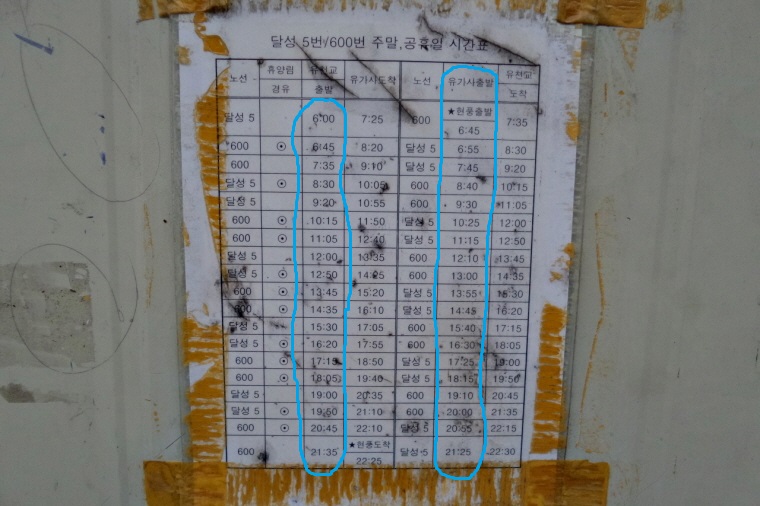 달성 5번/600번 주말,공휴일 시간표
노선 휴양림 경유 유천교 출발 유가사도착 노선 유가사출발 유천교 도착
달성 5 6:00 7:25 600 ★현풍출발 6:45 7:35
600 ⊙ 6:45 8:20 달성 5 6:55 8:30
600 7:35 9:10 달성 5 7:45 9:20
달성 5 ⊙ 8:30 10:05 600 8:40 10:15
달성 5 9:20 10:55 600 9:30 11:05
600 ⊙ 10:15 11:50 달성 5 10:25 12:00
600 ⊙ 11:05 12:40 달성 5 11:15 12:50
달성 5 12:00 13:35 600 12:10 13:45
달성 5 ⊙ 12:50 14:25 600 13:00 14:35
600 ⊙ 13:45 15:20 달성 5 13:55 15:30
600 ⊙ 14:35 16:10 달성 5 14:45 16:20
달성 5 15:30 17:05 600 15:40 17:15
달성 5 ⊙ 16:20 17:55 600 16:30 18:05
600 ⊙ 17:15 18:50 달성 5 17:25 19:00
600 ⊙ 18:05 19:40 달성 5 18:15 19:50
달성 5 19:00 20:35 600 19:10 20:45
달성 5 ⊙ 19:50 21:10 600 20:00 21:35
600 ⊙ 20:45 22:10 달성 5 20:55 22:15
600 21:35 ★현풍도착 22:25 달성 5 21:25 22:30